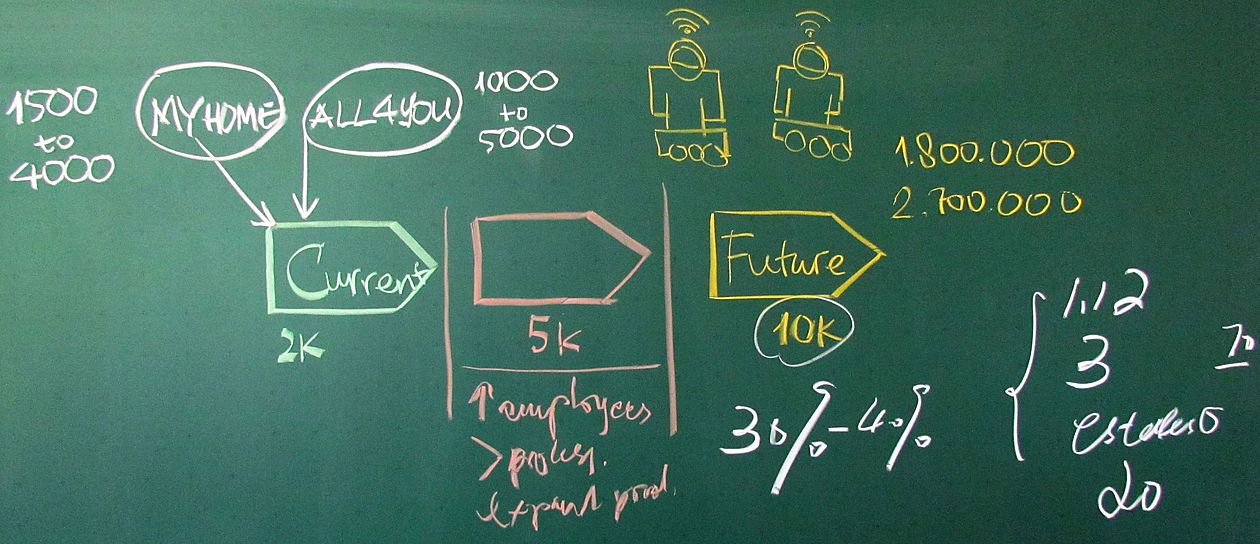 1500
to
4000
MYHOME
ALL4YOU
1000
to
5000
1.800.000
2.700.000
Current
2K
5K
↑ employees
>
expand prod.
Future
10K
30%-40%
1,12
3
20